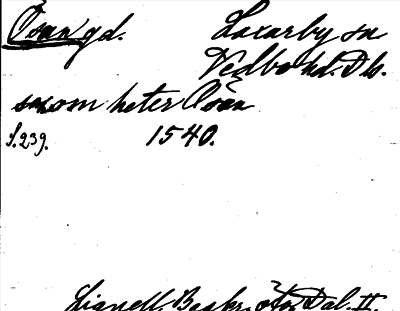 Åsan gd. Laxarby sn
Vedbo hd. Dls.
som heter Åsan
S. 239. 1540.
Lignell, Beskr. öfver Dal. II.